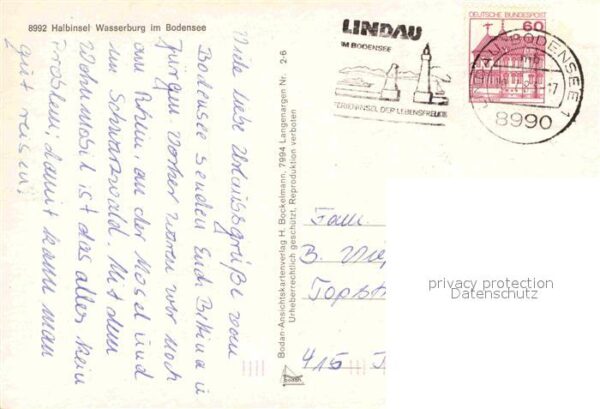 8992 Halbinsel Wasserburg im Bodensee
Viele liebe Urlaubsgrüße vom
Bodensee senden Euch Bettina u
Jürgen Vorher waren wir noch
am Rhein, an der Mosel und
im Schwarzwald. Mit dem
Wohnmobil ist das alles kein
Problem; damit kann man
gut reisen.
Bodan-Ansichtskartenverlag H. Bockelmann, 7994 Langenargen Nr. 2-6
Urheberrechtlich geschützt, Reproduktion verboten
bodan
LINDAU
IM BODENSEE
FERIENINSEL DER LEBENSFREUDE
DEUTSCHE BUNDESPOST
60
LINDAU, BODENSEE 1
8990
Fam.
B.
415
privacy protection
Datenschutz